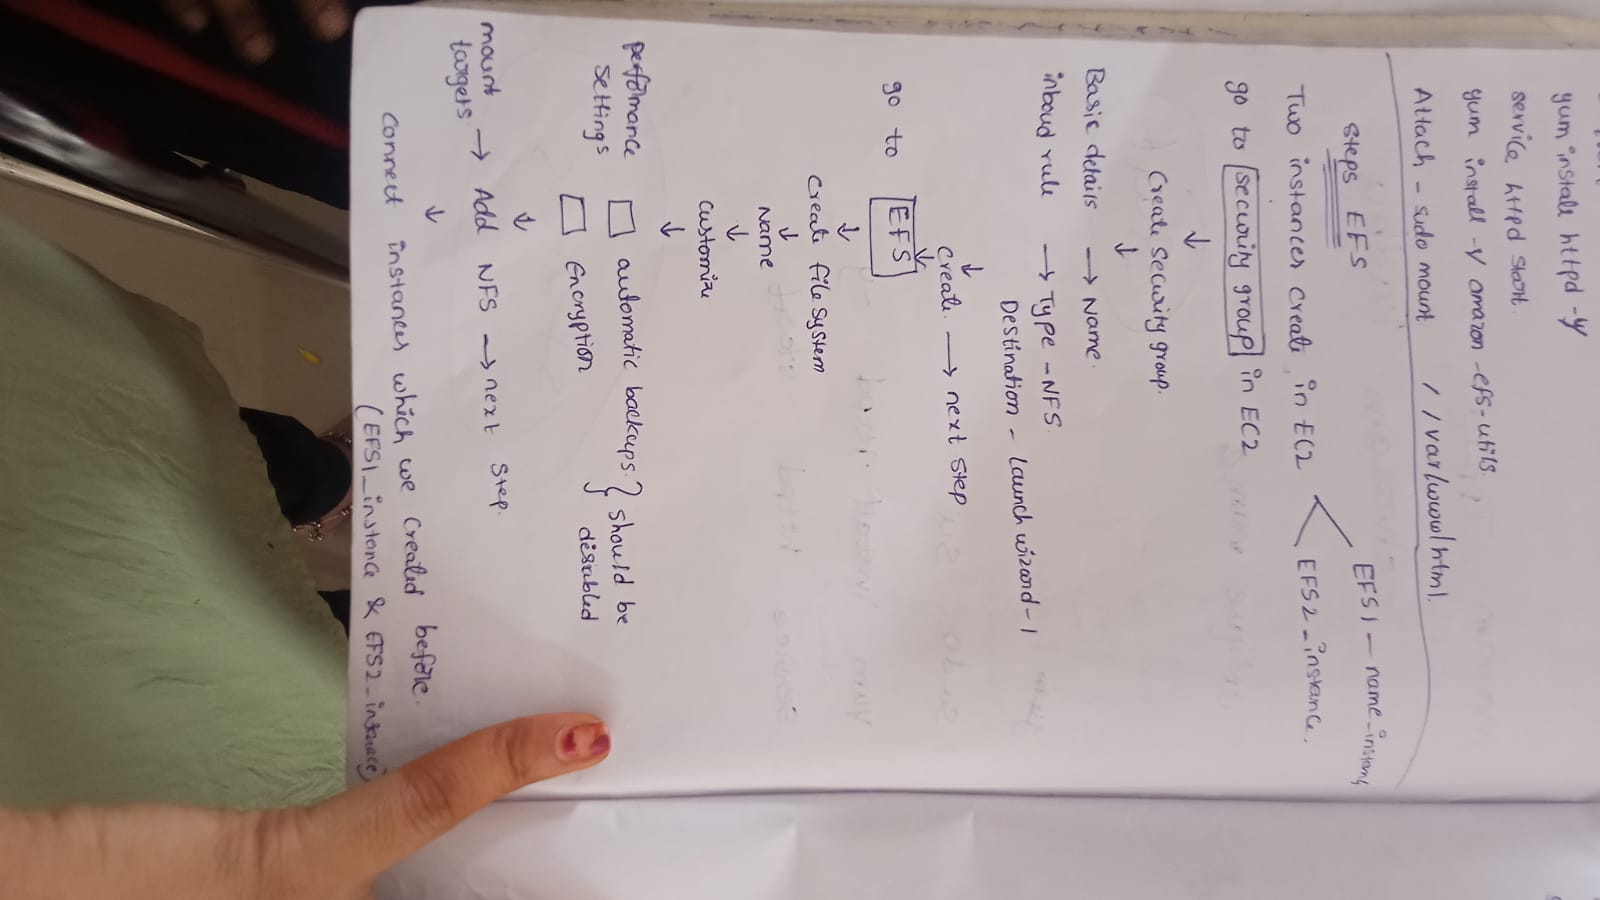 yum instale httpd -y
service httpd start.
yum install -y amazon-efs-utils
Attach - sudo mount / /var/www/html.
Steps EFS
EFS1 - name_instanc
Two instances create in EC2
EFS2_instance.
go to security group in EC2
↓
Create security group.
↓
Basic details → Name.
inboud rule → Type - NFS
Destination - launch wizard-1
↓
Create. → next step
go to EFS
↓
Create file system
↓
Name
↓
customize
↓
performance settings
☐ automatic backups. } should be
☐ Encryption } disabled
↓
mount targets → Add NFS → next step.
↓
Connect instances which we created before.
(EFS1_instance & EFS2_instance)